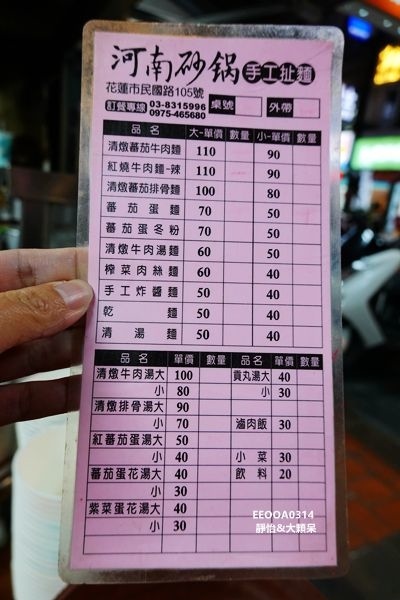 河南砂鍋 手工扯麵
花蓮市民國路105號
訂餐專線 03-8315996 0975-465680 桌號 外帶
品名 大-單價 數量 小-單價 數量
清燉蕃茄牛肉麵 110 90
紅燒牛肉麵-辣 110 90
清燉蕃茄排骨麵 100 80
蕃茄蛋麵 70 50
蕃茄蛋冬粉 70 50
清燉牛肉湯麵 60 50
榨菜肉絲麵 60 40
手工炸醬麵 50 40
乾麵 50 40
清湯麵 50 40
品名 單價 數量 品名 單價 數量
清燉牛肉湯大 100 貢丸湯大 40
小 80 小 30
清燉排骨湯大 90
小 70 滷肉飯 30
紅蕃茄蛋湯大 50
小 40 小菜 30
蕃茄蛋花湯大 40 飲料 20
小 30
紫菜蛋花湯大 40
小 30
EEOOA0314
靜怡&大顆呆